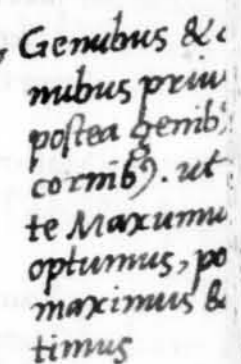 Genubus &
nubus
postea genib9
cornib9. ut
te Maxumu
optumus, po
maximus &
timus